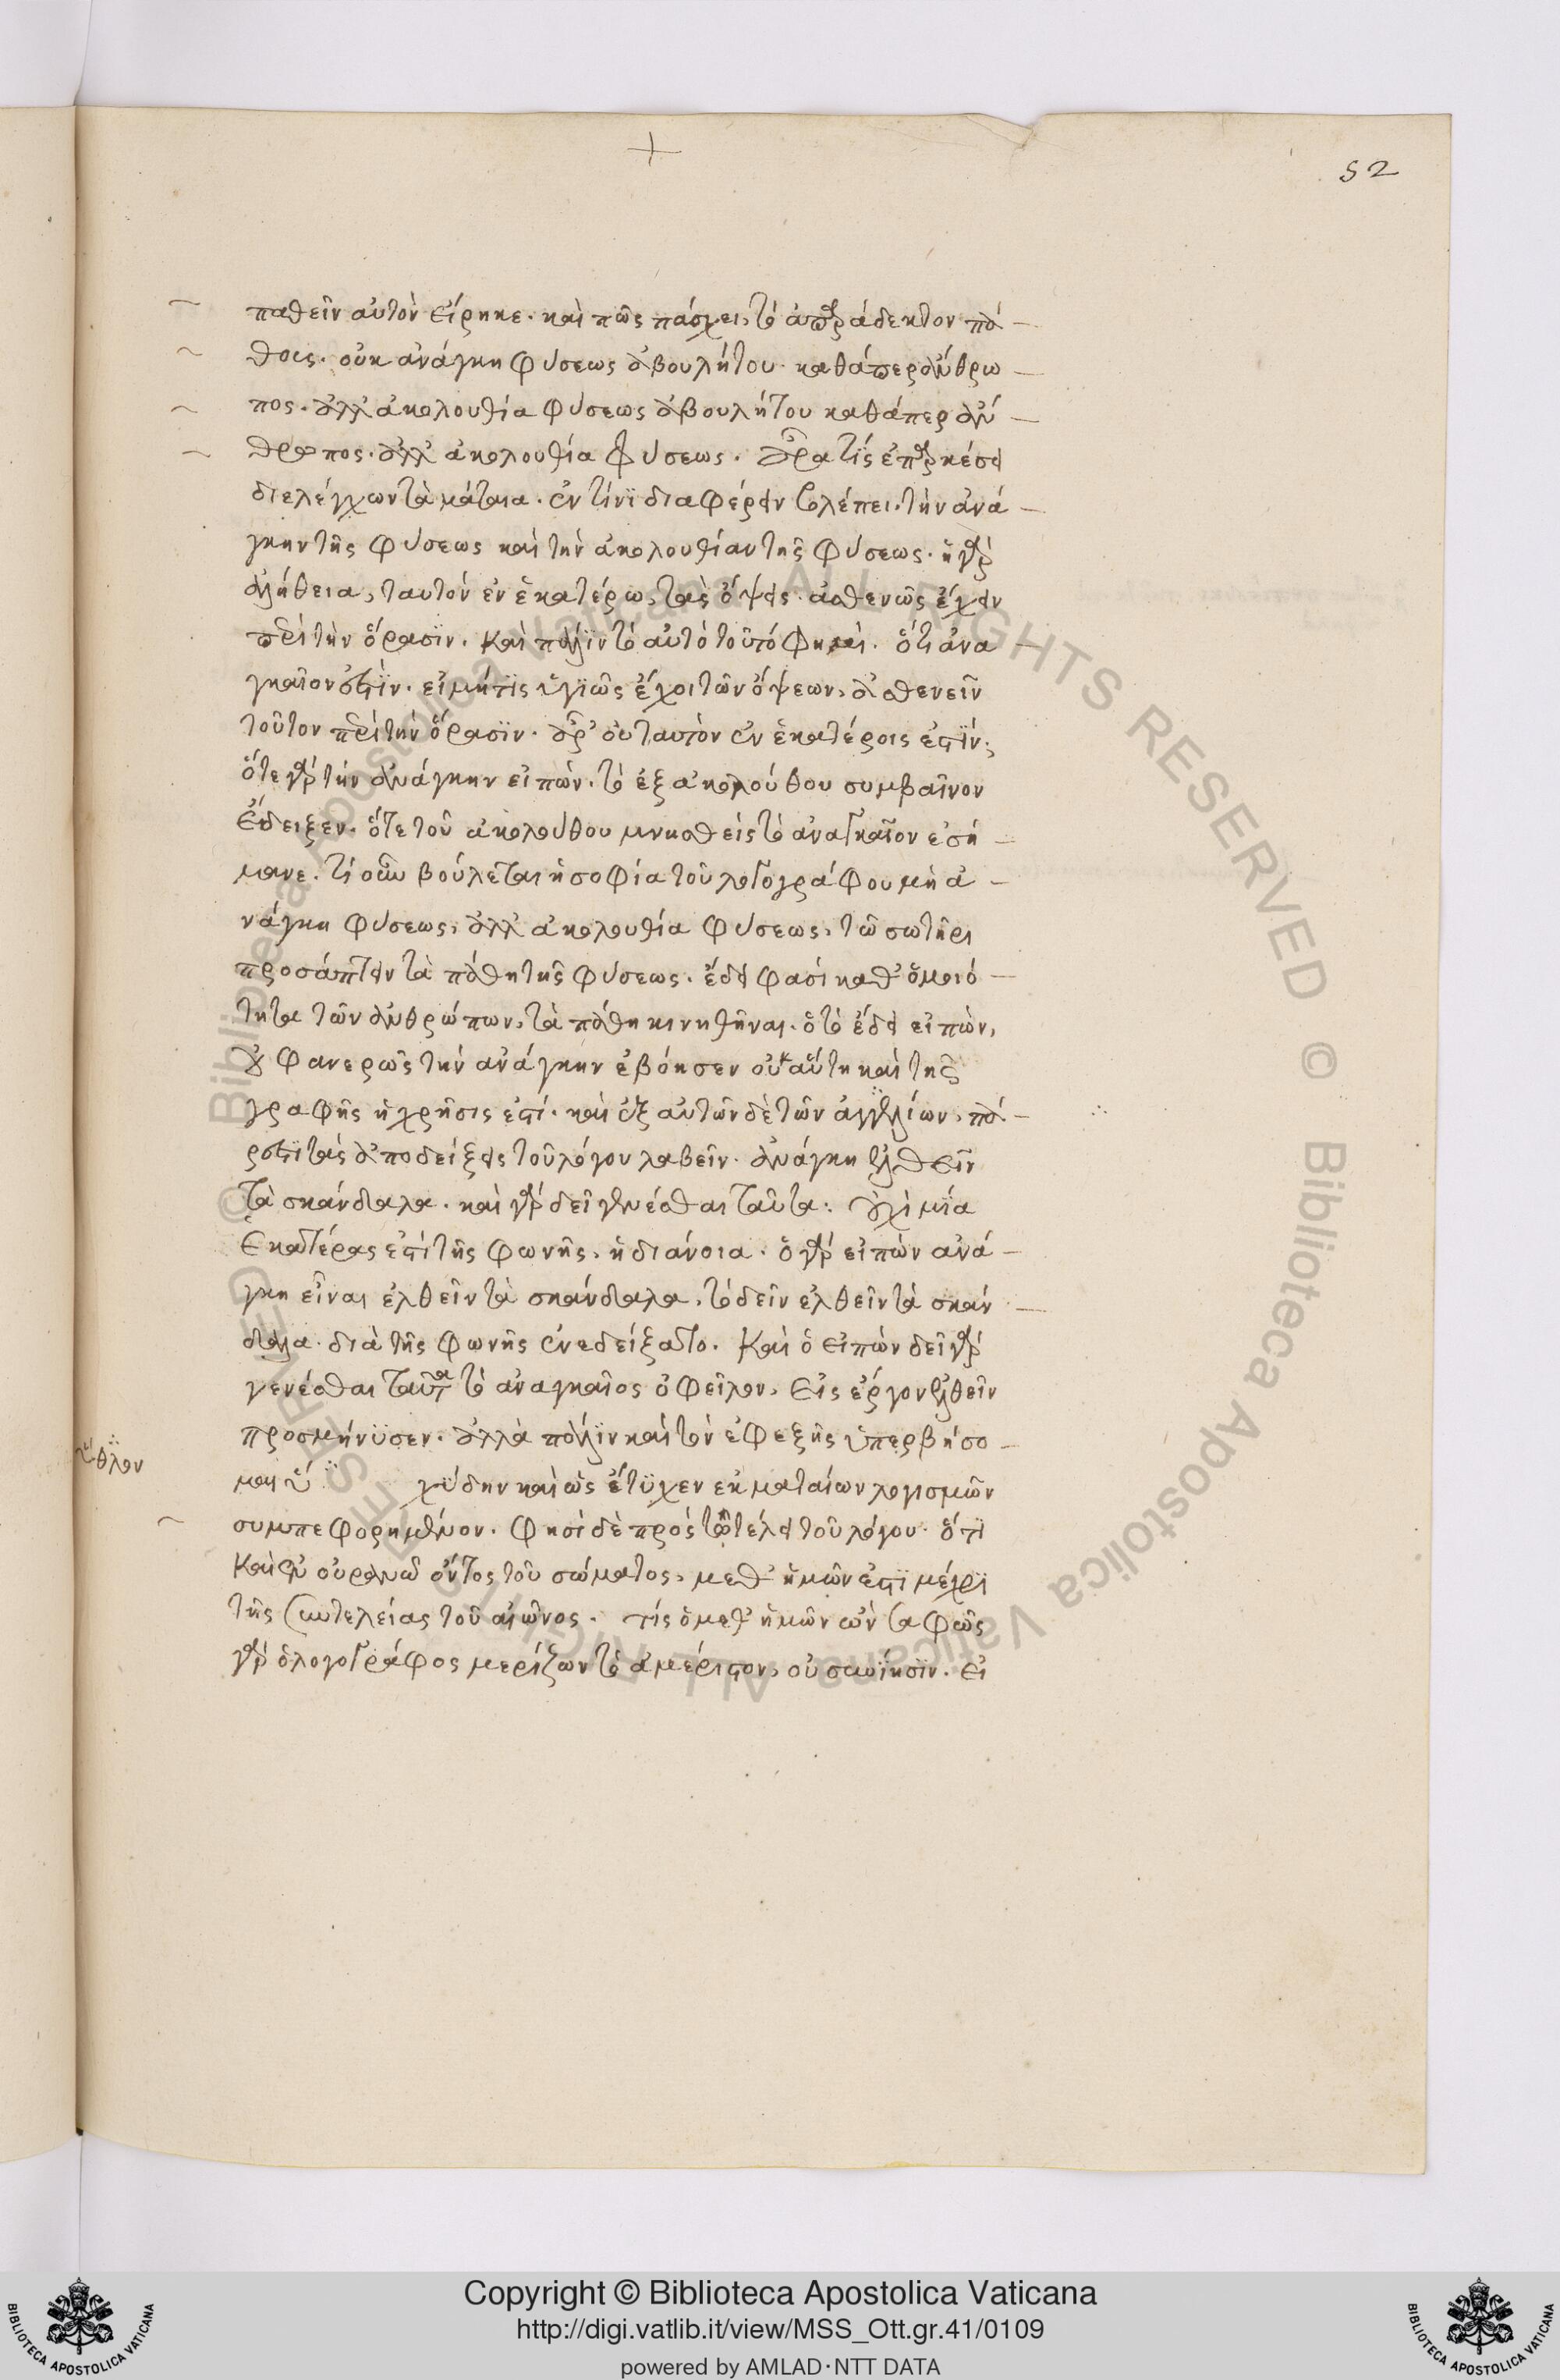 52
παθεῖν αὐτὸν εἴρηκε. καὶ πῶς πάσχει, τὸ ἀπαράδεκτον πά
θοις. οὐκ ἀνάγκη φύσεως ἀβουλήτου καθάπερ ἄνθρω
πος. ἀλλ' ἀκολουθία φύσεως ἀβουλήτου καθάπερ ἄν
θρωπος. ἀλλ' ἀκολουθία φύσεως. ἆρα τίς ἐπαρκέσει
διελέγχων τὰ μάταια. ἐν τίνϊ διαφέρειν βλέπει. τὴν ἀνά
γκην τῆς φύσεως καὶ τὴν ἀκολουθίαν τῆς φύσεως. ἡ γὰρ
ἀλήθεια, ταυτὸν ἐν ἑκατέρω, τὰς ὄψεις. ἀσθενῶς ἔχειν
περὶ τὴν ὅρασϊν. καὶ πάλϊν τὸ αὐτὸ τοῦτό φησι. ὅτι ἀνα
γκαῖον ἐστὶν. εἰ μήτϊς ὑγϊῶς ἔχοι τῶν ὄψεων, ἀσθενεῖν
τοῦτον περὶ τὴν ὅρασϊν. ἆρ' οὐ ταυτὸν ἐν ἑκατέροις ἐστίν;
ὅτε γὰρ τὴν ἀνάγκην εἰπών. τὸ ἐξ ἀκολούθου συμβαῖνον
ἔδειξεν. ὅτε τοῦ ἀκολούθου μνησθεὶς τὸ ἀναγκαῖον ἐσή
μανε. τί οὖν βούλεται ἡ σοφία τοῦ λογογράφου μὴ ἀ
νάγκη φύσεως, ἀλλ' ἀκολουθία φύσεως, τῶ σωτῆρι
προσάπτειν τὰ πάθη τῆς φύσεως. ἔδει φασὶ καθ' ὁμοιό
τητα τῶν ἀνθρώπων, τὰ πάθη κινηθῆναι. ὁ τὸ ἔδει εἰπὼν,
οὐ φανερῶς τὴν ἀνάγκην ἐβόησεν οὐκ αὕτη καὶ τῆς
γραφῆς ἡ χρῆσις ἐστί. καὶ ἐξ αὐτῶν δὲ τῶν ἀγγελίων, πά
ρεστι τὰς ἀποδείξεις τοῦ λόγου λαβεῖν. ἀνάγκη ἐλθεῖν
τὰ σκάνδαλα. καὶ γὰρ δεῖ γενέσθαι ταῦτα: οὐχὶ μία
ἑκατέρας ἐστὶ τῆς φωνῆς, ἡ διάνοια. ὁ γὰρ εἰπὼν ἀνά
γκη εἶναι ἐλθεῖν τὰ σκάνδαλα, τὸ δεῖν ἐλθεῖν τὰ σκάν
δαλα. διὰ τῆς φωνῆς ἐνεδείξατο. καὶ ὁ εἰπὼν δεῖ γὰρ
γενέσθαι ταῦτα τὸ ἀναγκαῖος ὀφεῖλον, εἰς ἔργον ἐλθεῖν
προσμήνϋσεν. ἀλλὰ πάλϊν καὶ τὸν ἐφεξῆς ὑπερβήσο
μαι χύδην καὶ ὡς ἔτϋχεν ἐκ ματαίων λογισμῶν
συμπεφορημένον. φησὶ δὲ πρὸς τῶ τέλει τοῦ λόγου. ὅτϊ
καὶ ἐν οὐρανῶ ὄντος τοῦ σώματος, μεθ' ἡμῶν ἐστϊ μέχρϊ
τῆς συντελείας τοῦ αἰῶνος. τίς ὁ μεθ' ἡμῶν ὢν σαφῶς
γὰρ ὁ λογογράφος μερίζων τὸ ἀμέριστον, οὐ συνίησϊν. εἰ
Copyright © Biblioteca Apostolica Vaticana
http://digi.vatlib.it/view/MSS_Ott.gr.41/0109
powered by AMLAD·NTT DATA